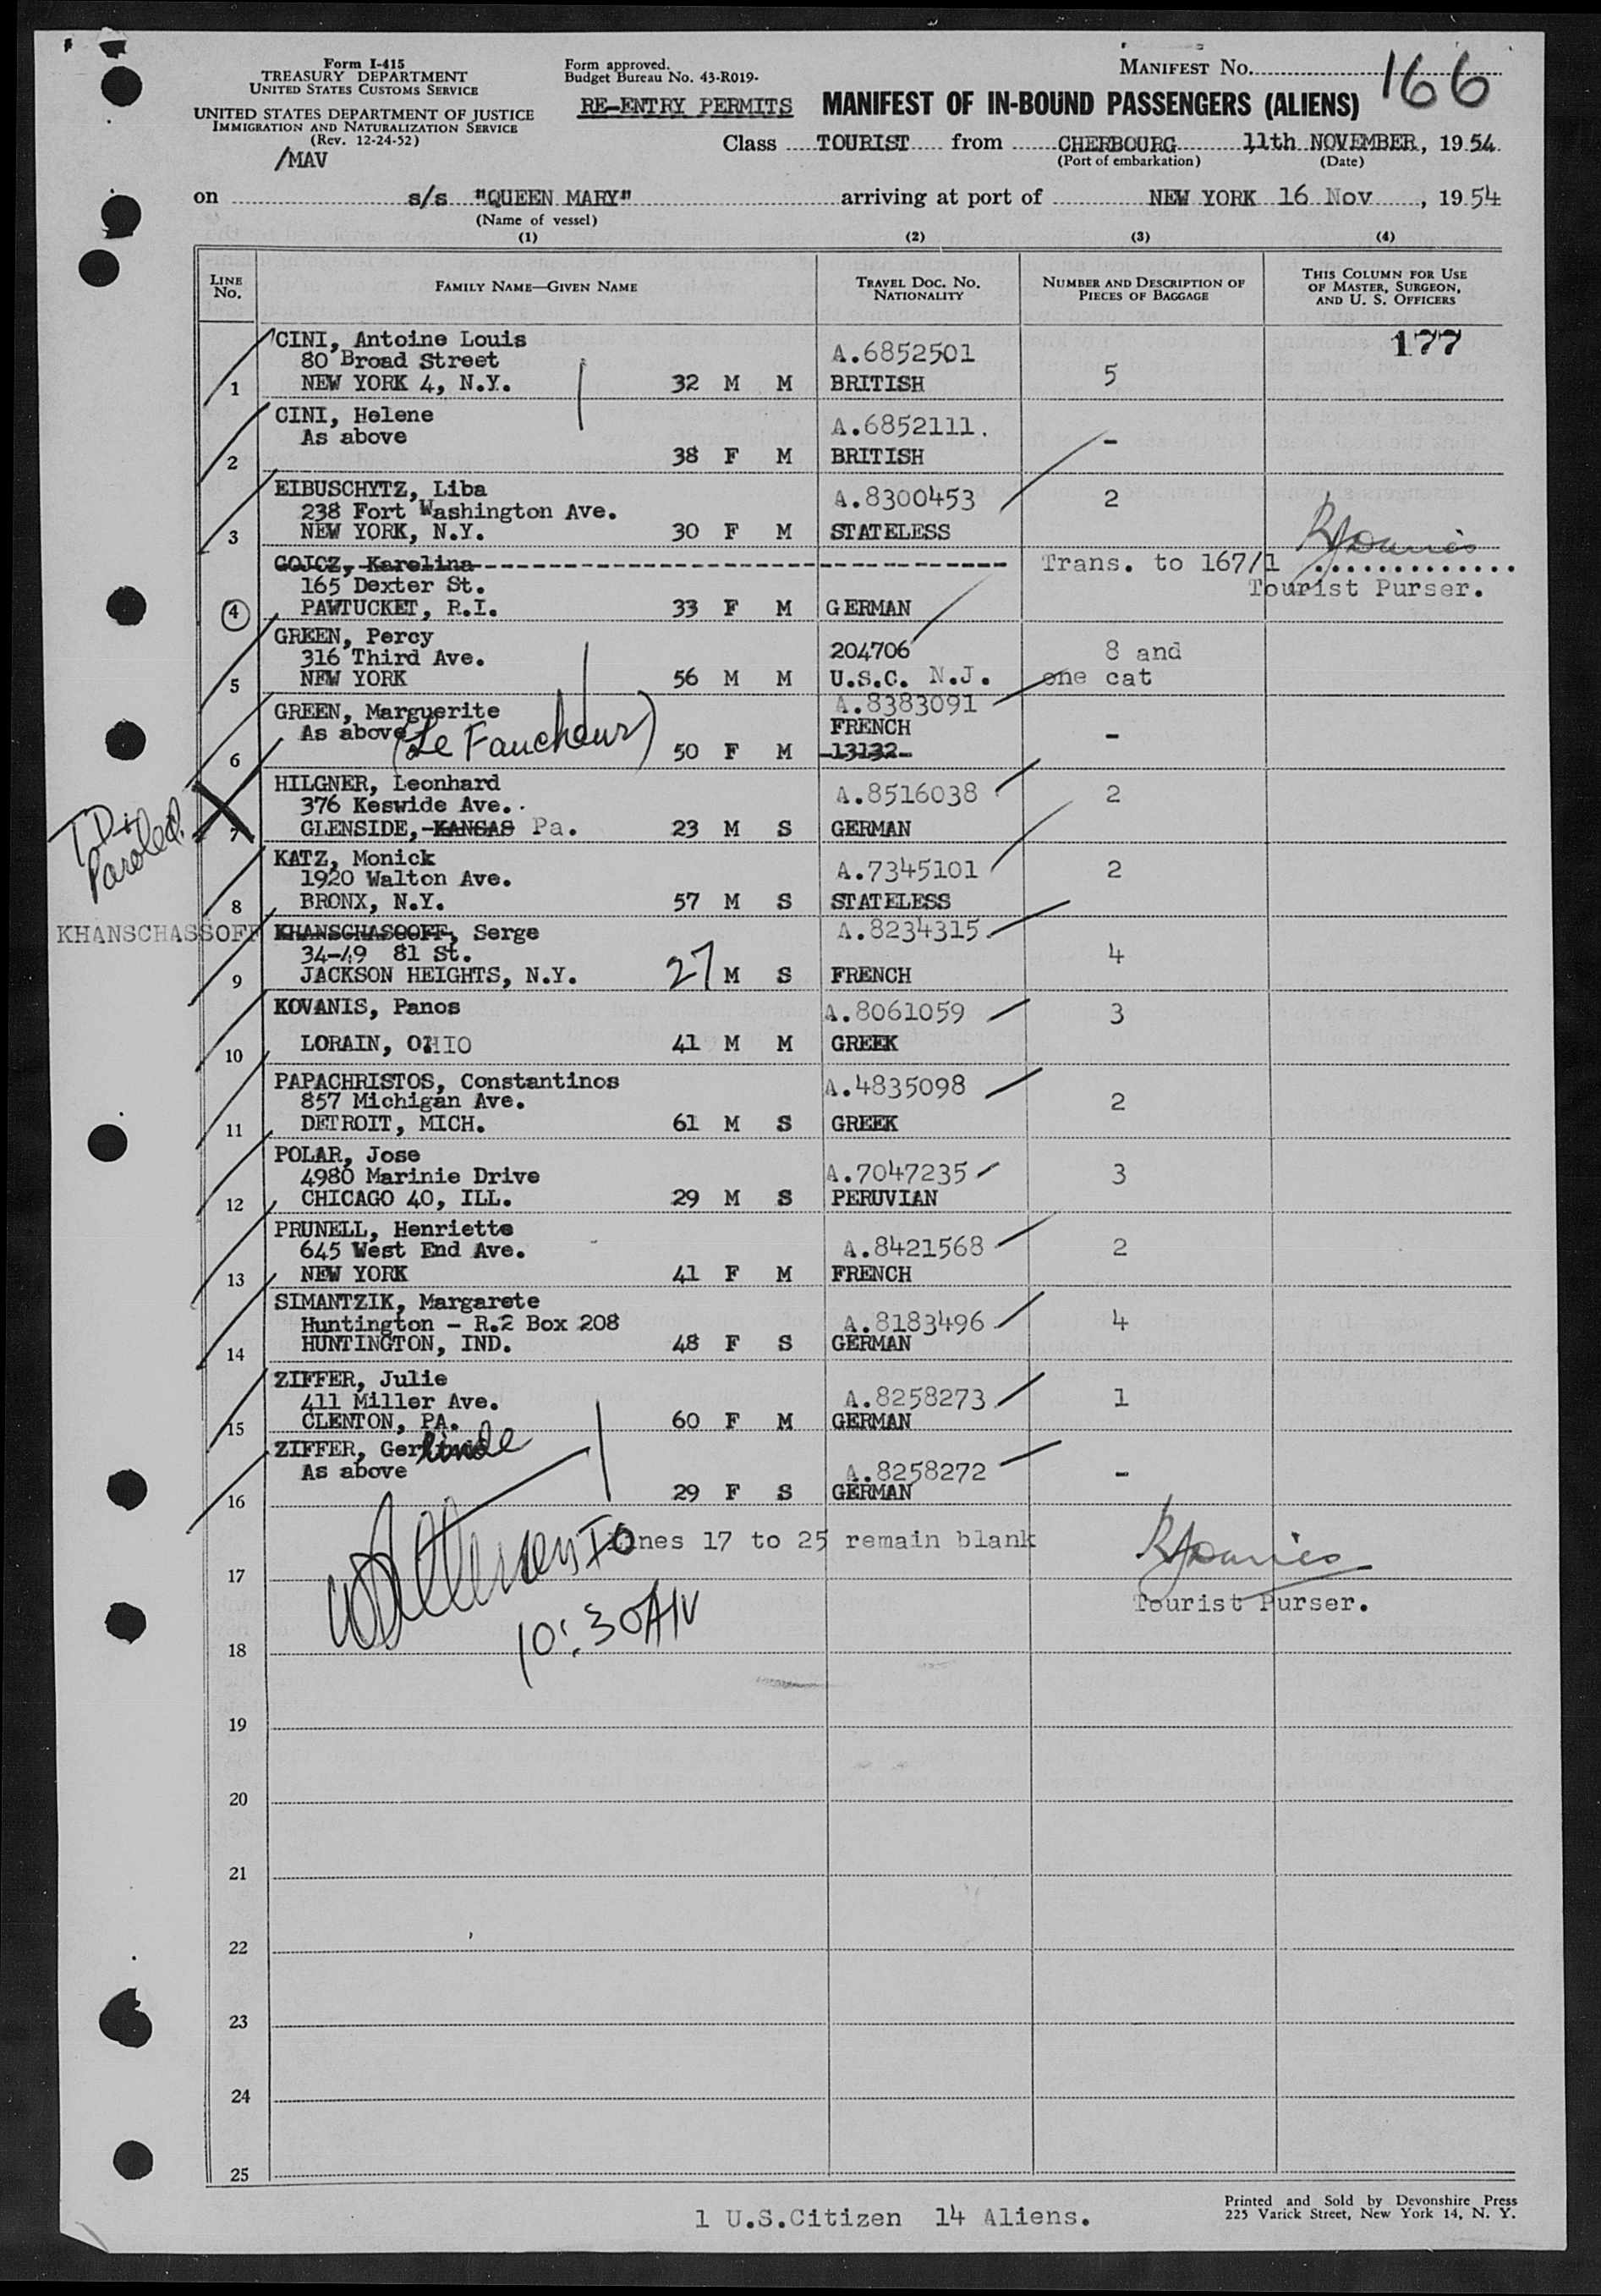 Form I-415
TREASURY DEPARTMENT
UNITED STATES CUSTOMS SERVICE
UNITED STATES DEPARTMENT OF JUSTICE
IMMIGRATION AND NATURALIZATION SERVICE
(Rev. 12-24-52)
/MAV
Form approved.
Budget Bureau No. 43-R019-
MANIFEST No. 166
RE-ENTRY PERMITS MANIFEST OF IN-BOUND PASSENGERS (ALIENS)
Class TOURIST from CHERBOURG 11th NOVEMBER, 1954
(Port of embarkation) (Date)
on s/s "QUEEN MARY" arriving at port of NEW YORK 16 Nov, 1954
(Name of vessel)
(1) (2) (3) (4)
LINE No. FAMILY NAME—GIVEN NAME TRAVEL DOC. NO. NATIONALITY NUMBER AND DESCRIPTION OF PIECES OF BAGGAGE THIS COLUMN FOR USE OF MASTER, SURGEON, AND U. S. OFFICERS
177
CINI, Antoine Louis A.6852501
80 Broad Street
1 NEW YORK 4, N.Y. 32 M M BRITISH 5
CINI, Helene A.6852111.
As above
2 38 F M BRITISH -
EIBUSCHYTZ, Liba A.8300453 2
238 Fort Washington Ave.
3 NEW YORK, N.Y. 30 F M STATELESS
GOJCZ, Karolina Trans. to 167/1
165 Dexter St. Tourist Purser.
4 PAWTUCKET, R.I. 33 F M GERMAN
GREEN, Percy 204706 8 and
316 Third Ave.
5 NEW YORK 56 M M U.S.C. N.J. one cat
GREEN, Marguerite A.8383091
As above (Le Faucheur) FRENCH -
6 50 F M 13132
HILGNER, Leonhard A.8516038 2
376 Keswide Ave.
7 GLENSIDE, KANSAS Pa. 23 M S GERMAN
Paroled.
KATZ, Monick A.7345101 2
1920 Walton Ave.
8 BRONX, N.Y. 57 M S STATELESS
KHANSCHASSOFF KHANSCHASOOFF, Serge A.8234315
34-49 81 St. 4
9 JACKSON HEIGHTS, N.Y. 27 M S FRENCH
KOVANIS, Panos A.8061059 3
10 LORAIN, OHIO 41 M M GREEK
PAPACHRISTOS, Constantinos A.4835098
857 Michigan Ave. 2
11 DETROIT, MICH. 61 M S GREEK
POLAR, Jose
4980 Marinie Drive A.7047235 3
12 CHICAGO 40, ILL. 29 M S PERUVIAN
PRUNELL, Henriette
645 West End Ave. A.8421568 2
13 NEW YORK 41 F M FRENCH
SIMANTZIK, Margarete
Huntington - R.2 Box 208 A.8183496 4
14 HUNTINGTON, IND. 48 F S GERMAN
ZIFFER, Julie
411 Miller Ave. A.8258273 1
15 CLENTON, PA. 60 F M GERMAN
ZIFFER, Gerlinde
As above A.8258272 -
16 29 F S GERMAN
Lines 17 to 25 remain blank
17
Tourist Purser.
10:30AM
18
19
20
21
22
23
24
25
1 U.S.Citizen 14 Aliens.
Printed and Sold by Devonshire Press
225 Varick Street, New York 14, N. Y.